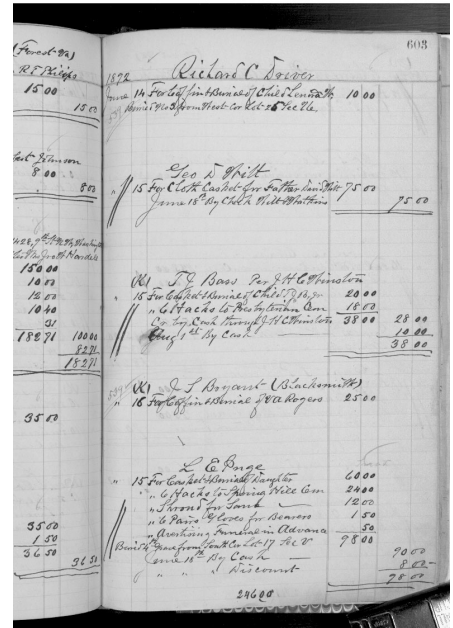 (Forest Va)
R F Philips
15 00
15 00
Johnson
8 00
8 00
150 00
10 00
12 00
10 40
31
182 71 100 00
82 71
182 71
35 00
35 00
1 50
36 50
36 50
603
1892 Richard C Driver
June 14 For Coffin & Burial of Child 10 00
Buried from West Cor Lot 25 Sec
Geo D Wilt
" 15 For Cloth Casket for Father Wilt 75 00
June 18th By Check Wilt & Watkins 75 00
(K) T. J. Bass Per J H C Winston
" 15 For Casket & Burial of Child 20 00
" 6 Hacks to Presbyterian Cem 18 00
Cr by Cash through J H C Winston 38 00 28 00
Aug 1st By Cash 10 00
38 00
(K) J S Bryant (Blacksmith)
" 16 For Coffin & Burial of Rogers 25 00
L E
" 15 For Casket & Burial of Daughter 60 00
" 6 Hacks to Spring Hill Cem 24 00
" Shroud for Same 12 00
" 6 Pairs Gloves for Bearers 1 50
" Avertising Funeral in Advance 50
Buried 4th Grave from South Lot 17 Sec V 98 00
June 16th By Cash 90 00
" " " Discount 8 00
98 00
24600